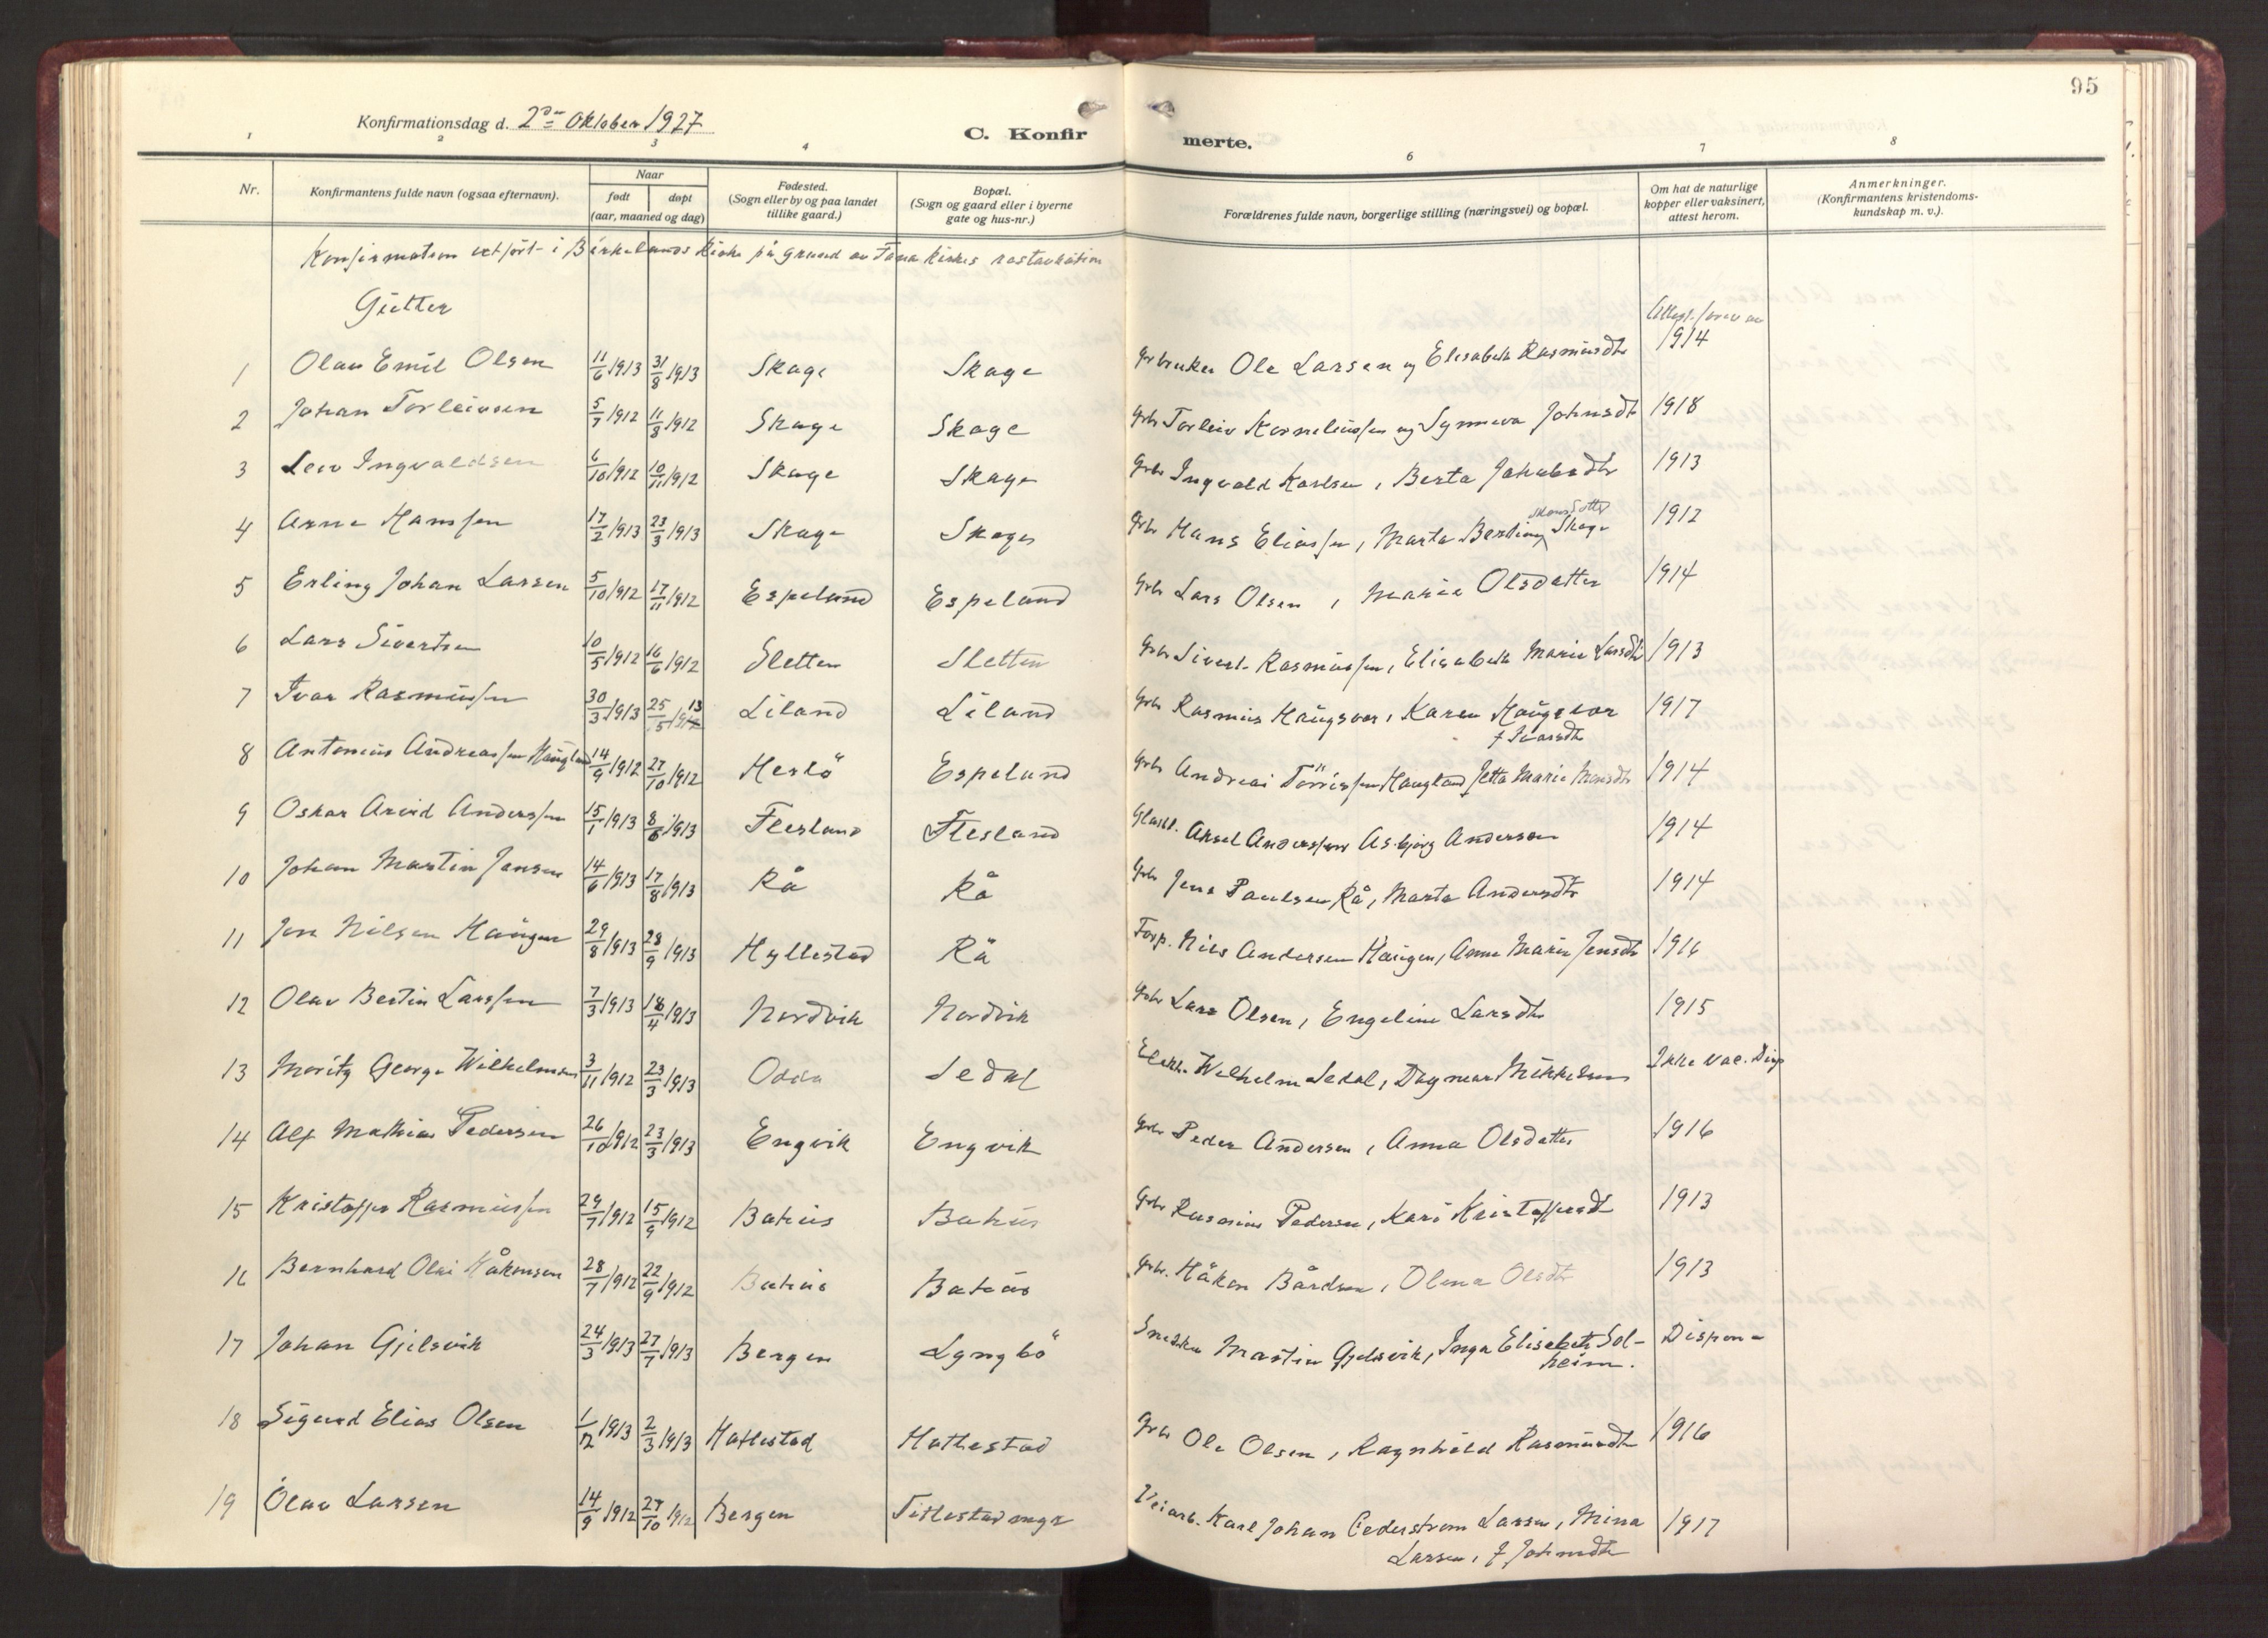 95
Konfirmationsdag d. 2den Oktober 1927
C. Konfirmerte.
1 2 3 4 6 7 8
Nr. Konfirmantens fulde navn (ogsaa efternavn). Naar født døpt (aar, maaned og dag) Fødested. (Sogn eller by og paa landet tillike gaard.) Bopæl. (Sogn og gaard eller i byerne gate og hus-nr.) Forældrenes fulde navn, borgerlige stilling (næringsvei) og bopæl. Om hat de naturlige kopper eller vaksinert, attest herom. Anmerkninger. (Konfirmantens kristendoms-kundskap m. v.).
Konfirmation utført i Birkelands Kirke på grund av Fana Kirkes restauration
Gutter
1 Olav Emil Olsen 11/6 1913 31/8 1913 Skage Skage Grbruker Ole Larsen og Elisabeth Rasmusdtr 1914
2 Johan Torleivsen 5/7 1912 11/8 1912 Skage Skage Grbr Torleiv Korneliussen og Synneva Johnsdtr 1918
3 Leiv Ingvaldsen 6/10 1912 10/11 1912 Skage Skage Grbr Ingvald Karlsen, Berta Jakobsdtr 1913
4 Arne Hanssen 17/2 1913 23/3 1913 Skage Skage Grbr Hans Eliassen, Marta Bertine Skage 1912
5 Erling Johan Larsen 5/10 1912 17/11 1912 Espeland Espeland Grbr Lars Olsen, Marie Olsdatter 1914
6 Lars Sivertsen 10/5 1912 16/6 1912 Sletten Sletten Grbr Sivert Rasmussen, Elisabeth Marie Larsdtr 1913
7 Ivar Rasmussen 30/3 1913 25/5 1913 Liland Liland Grbr Rasmus Haugsvær, Karen Haugsvær f Ivarsdtr 1917
8 Antonius Andreassen Haugland 14/9 1912 27/10 1912 Herlö Espeland Grbr Andreas Törrissen Haugland Jetta Marie Monsdtr 1914
9 Oskar Arvid Anderssen 15/1 1913 8/6 1913 Flesland Flesland Aksel Anderssen Asbjørg Andersen 1914
10 Johan Martin Jensen 14/6 1913 17/8 1913 Rå Rå Grbr Jens Paulsen Rå, Marta Andersdtr 1914
11 Jon Nilsen Haugen 29/8 1913 28/9 1913 Hyllestad Rå Forp. Nils Andersen Haugen, Anna Marie Jensdtr 1916
12 Olav Bertin Larssen 7/3 1913 18/4 1913 Nordvik Nordvik Grbr Lars Olsen, Engeline Larsdtr 1915
13 Moritz George Wilhelmsen 3/11 1912 23/3 1913 Odda Sedal Elektr. Wilhelm Sedal, Dagmar Mikkelsen Ikke vac. Disp
14 Alf Mathias Pedersen 26/10 1912 23/3 1913 Engvik Engvik Grbr Peder Andersen, Anna Olsdatter 1916
15 Kristoffer Rasmussen 29/7 1912 15/9 1912 Bahus Bahus Grbr Rasmus Pedersen, Kari Kristoffersdt 1913
16 Bernhard Olai Håkonsen 28/7 1912 22/9 1912 Bahus Bahus Grbr. Håkon Bårdsen, Olena Olsdtr 1913
17 Johan Gjelsvik 24/3 1913 27/7 1913 Bergen Lyngbö Snekker Martin Gjelsvik, Inga Elisabeth Solheim. Dispen
18 Sigurd Elias Olsen 1/12 1913 2/3 1913 Hatlestad Hatlestad Grbr Ole Olsen, Ragnhild Rasmusdtr 1916
19 Olav Larsen 14/9 1912 27/10 1912 Bergen Titlestadmyr Veiarb. Karl Johan Cederstrom Larsen, Mina Larsen, f Johnsdtr 1917